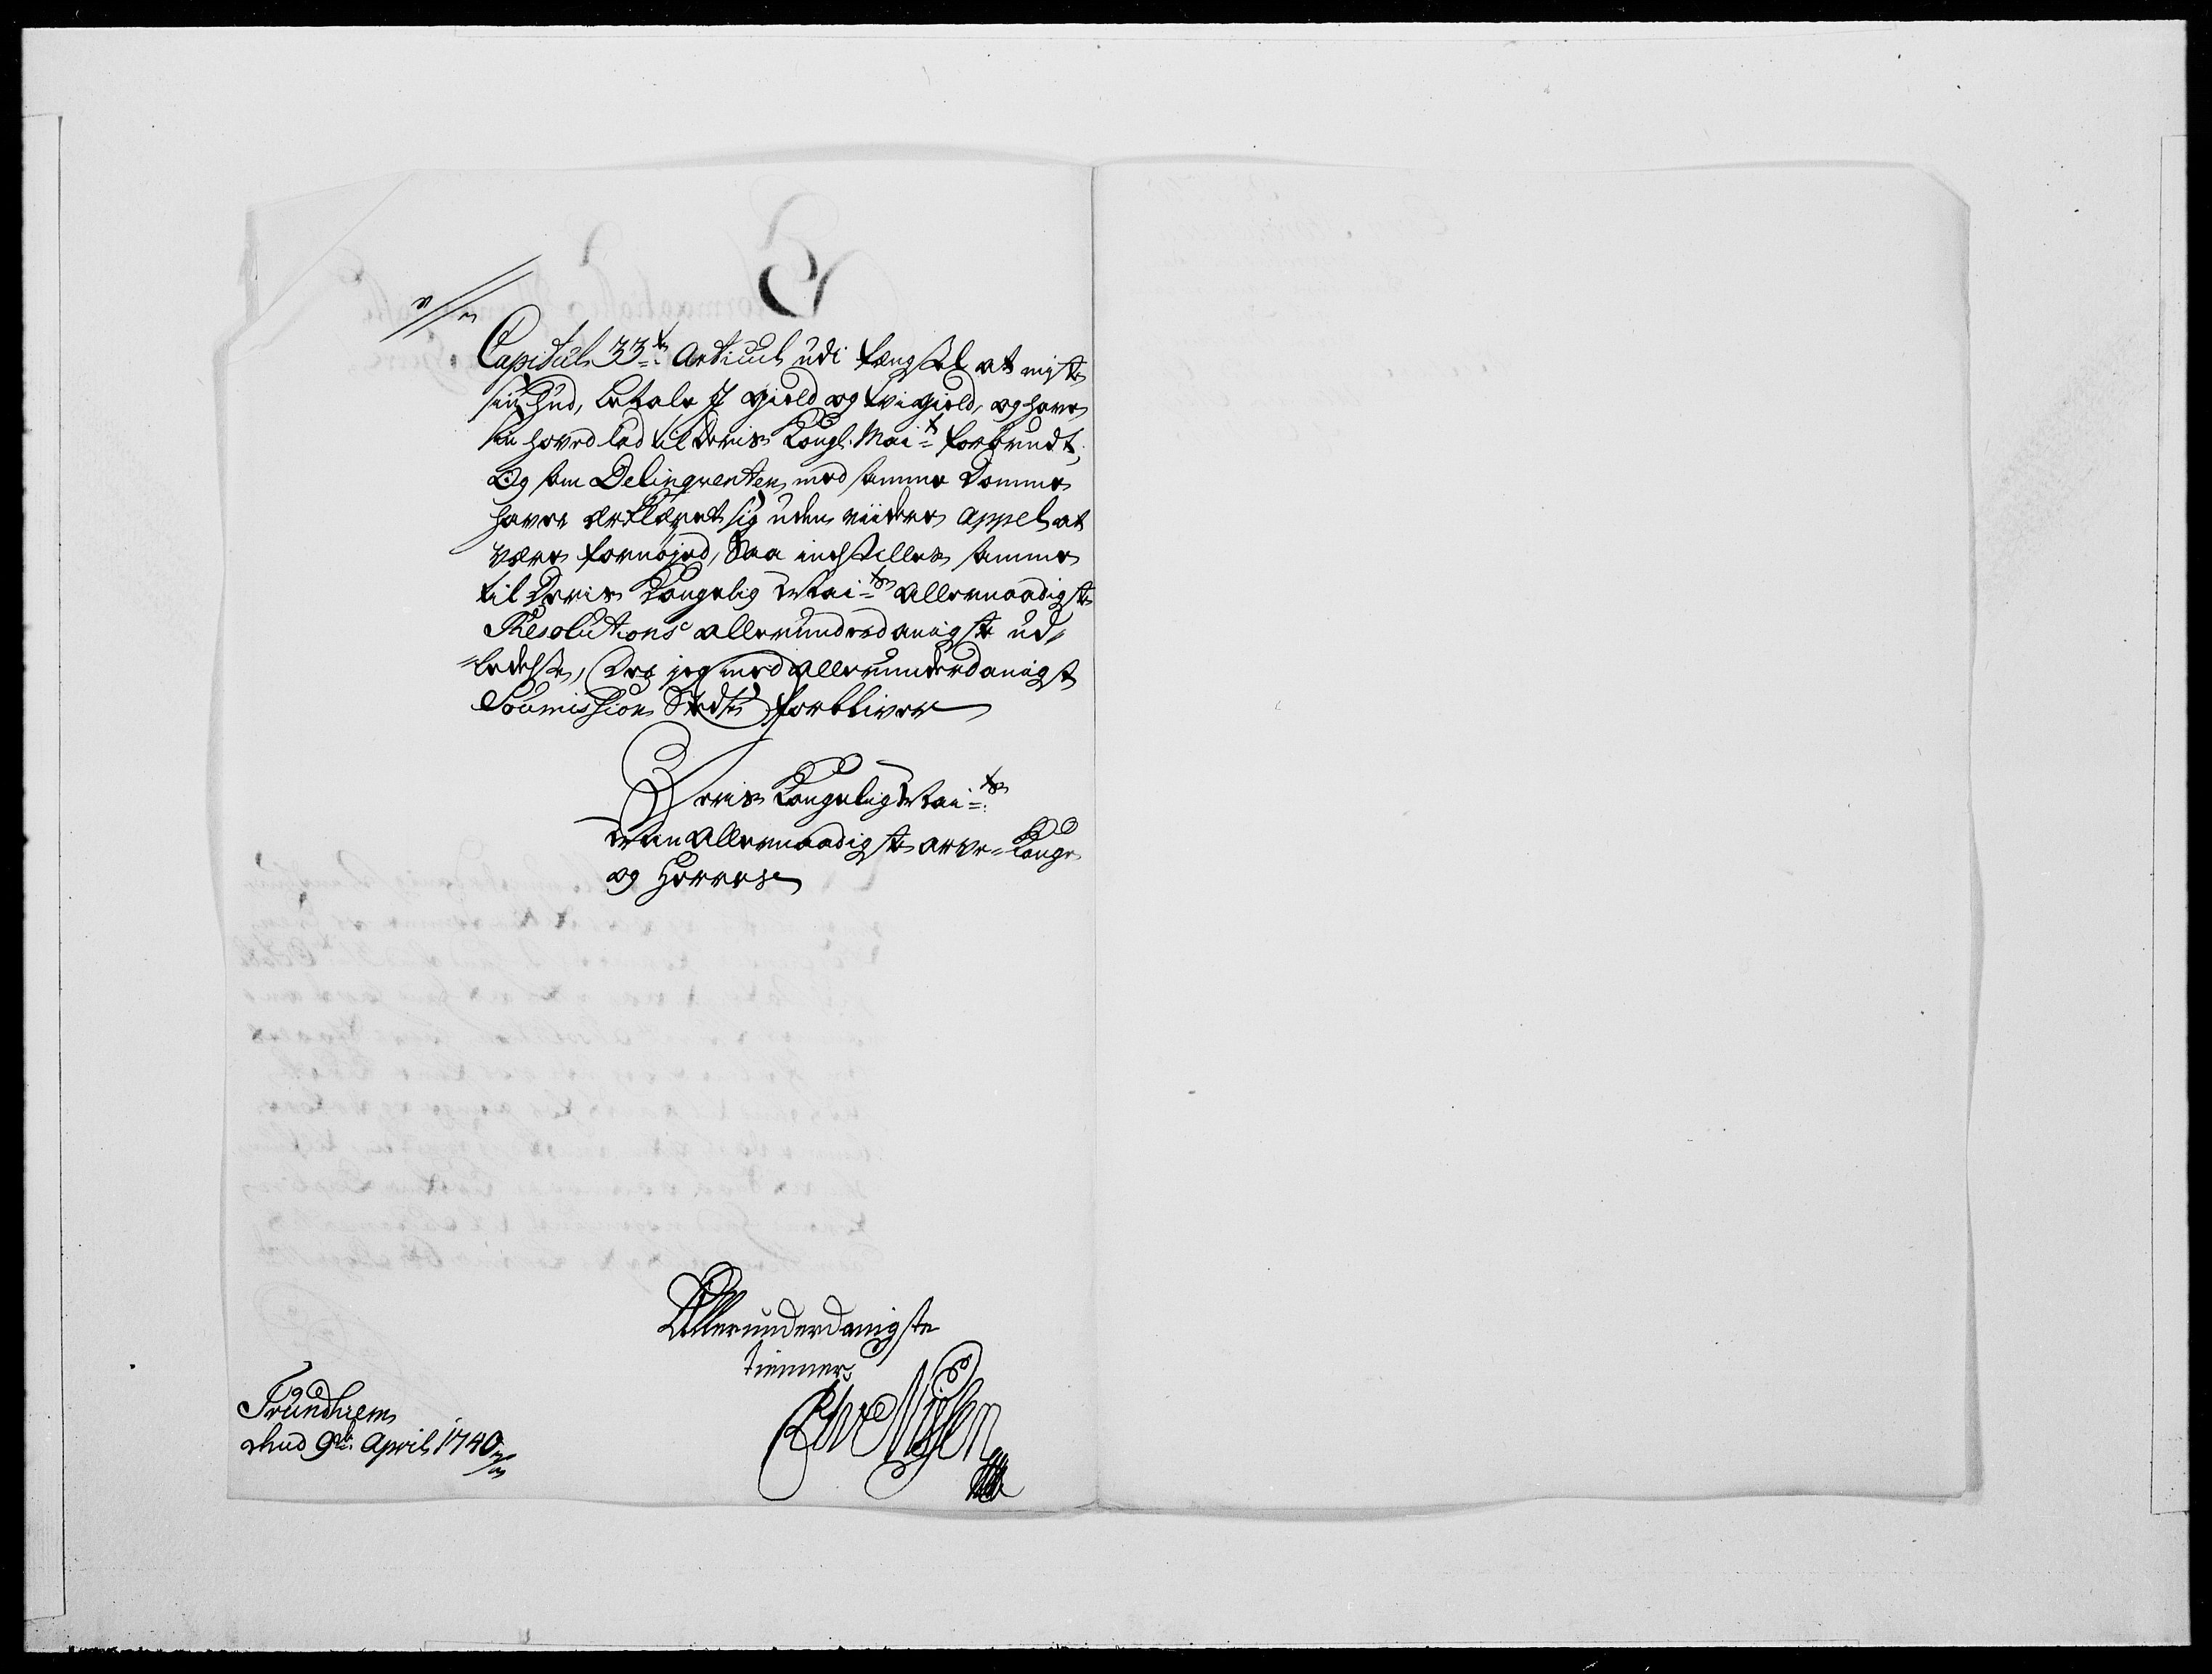 Capitul 33te Articul udi fængsel at miste
sin Hud, betale J gield og tvigield, og have
sin hoved lod til Deris Kongl. Mait forbrudt,
Og som Delinqventen med samme Domme
haver erklæret sig uden viidere appel at
være fornøjed, Saa indstilles samme
til Deris Kongelig Maits Allernaadigste
Resolutions allerunderdanigste ud-
=bedelse, Der jeg med allerunderdanigst
Soumission Stedse forbliver
Deris Kongelig Maits
Min Allernaadigste arve-Konge
og Herres
Allerunderdanigste
tienner
Trundhiem
dend 9de April 1740